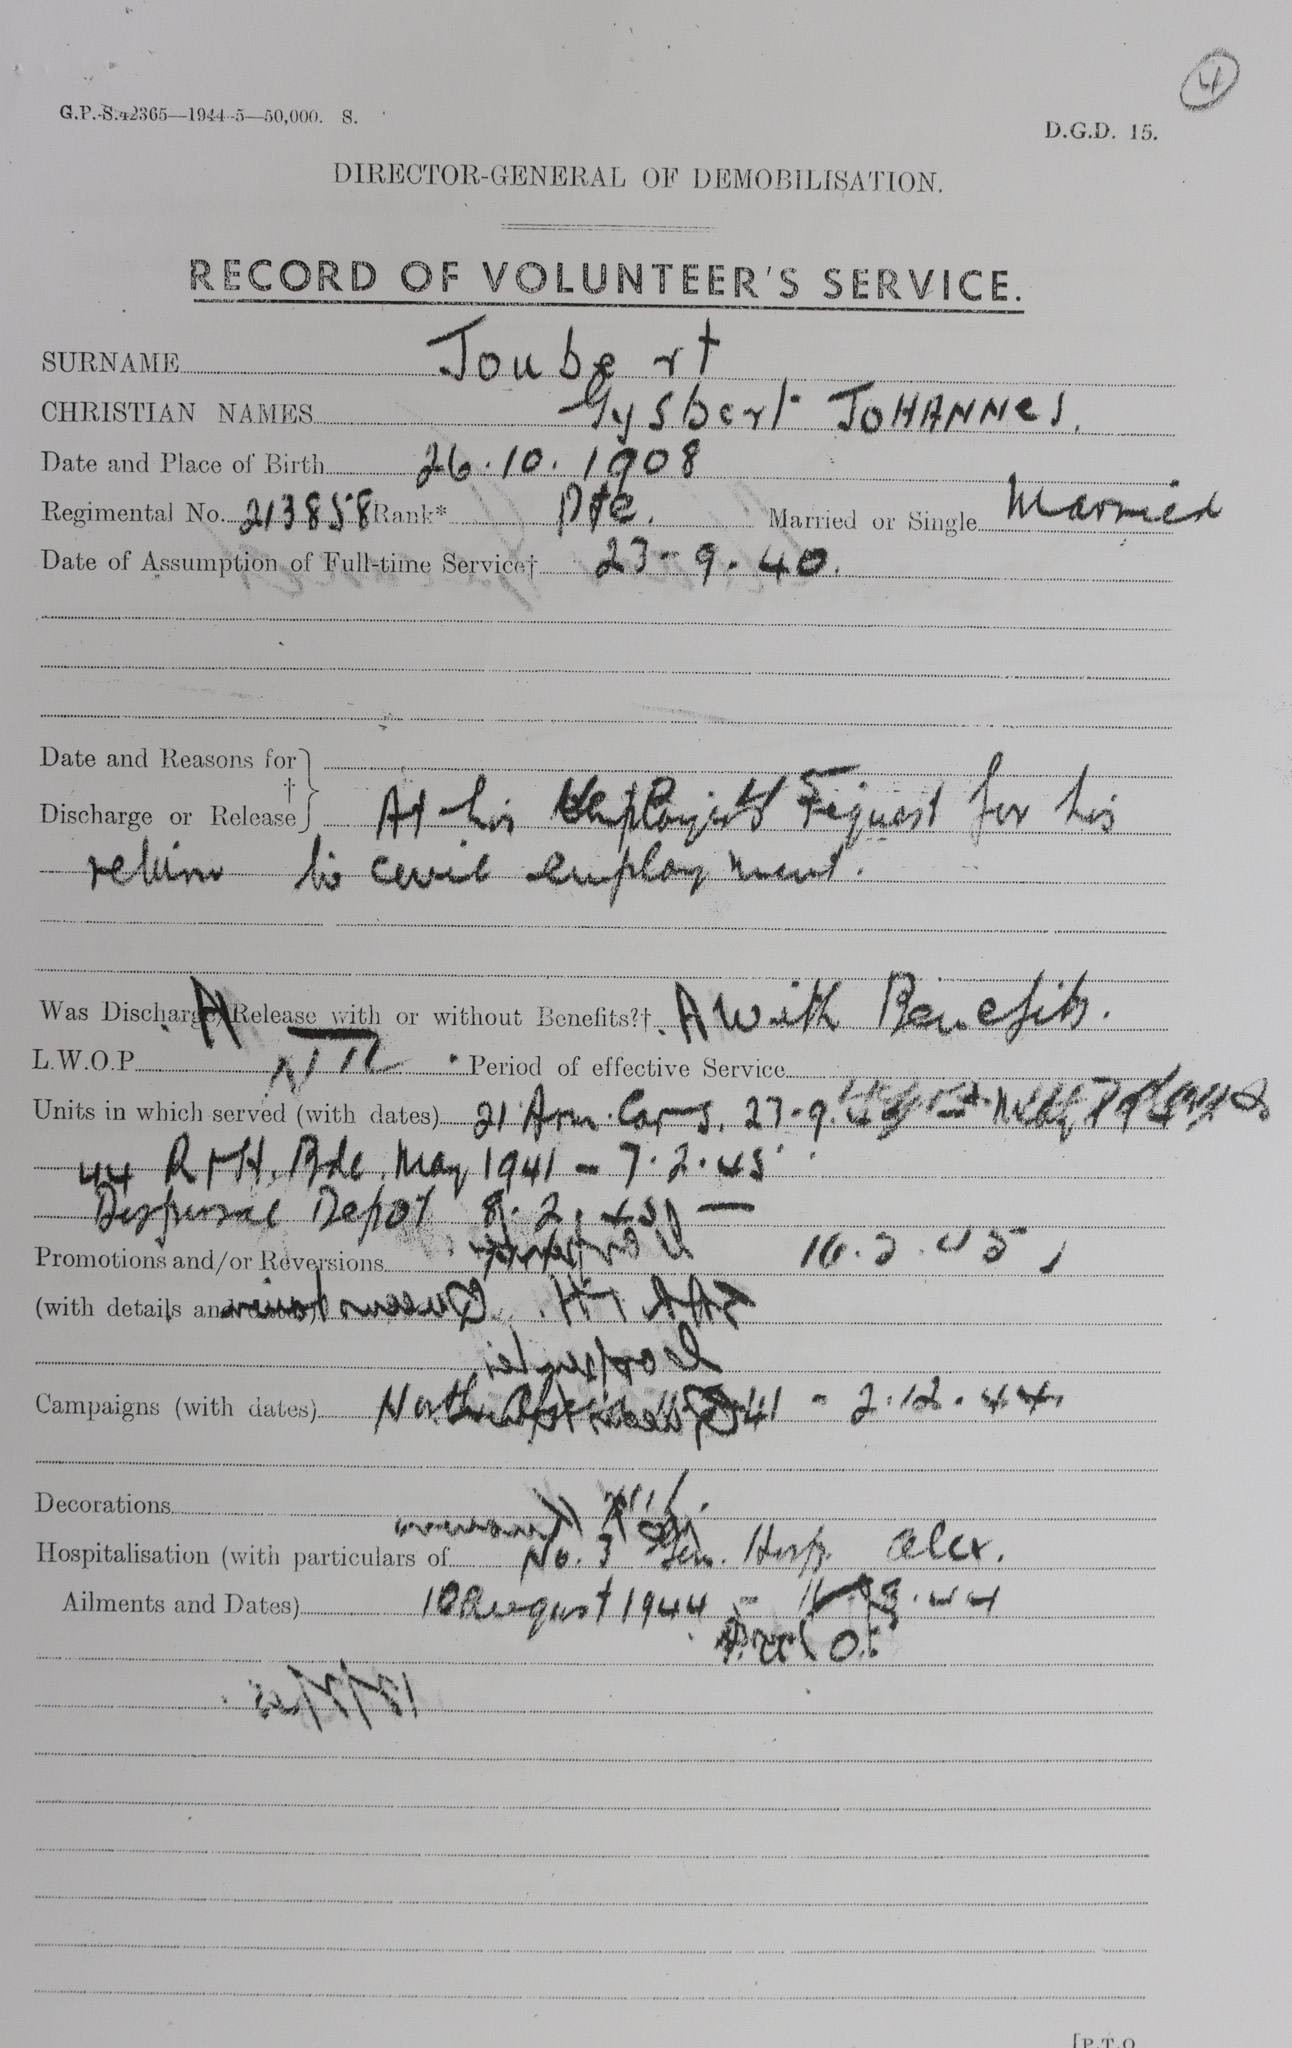 4
G.P.-S.42365—1944-5—50,000. S.
D.G.D. 15.
DIRECTOR-GENERAL OF DEMOBILISATION.
RECORD OF VOLUNTEER'S SERVICE.
SURNAME Joubert
CHRISTIAN NAMES Gysbert JOHANNES.
Date and Place of Birth 26.10.1908
Regimental No. 213858 Rank* Pte. Married or Single Married
Date of Assumption of Full-time Service† 23-9.40.
Date and Reasons for
†
Discharge or Release At his Employer's request for his
return to civil employment.
Was Discharge/Release with or without Benefits?† A With Benefits.
L.W.O.P. NIL Period of effective Service
Units in which served (with dates) 21 Arm. Cars.
44 R.M.H. Bde. May 1941 - 7.2.45
Dispersal Depot 8.2.45 —
Promotions and/or Reversions 16.2.45
(with details and dates)
Campaigns (with dates) North 41 - 2.12.44.
Decorations
Hospitalisation (with particulars of No. 3 Gen. Hosp. Alex.
Ailments and Dates) 10 August 1944 - 44
[P.T.O.